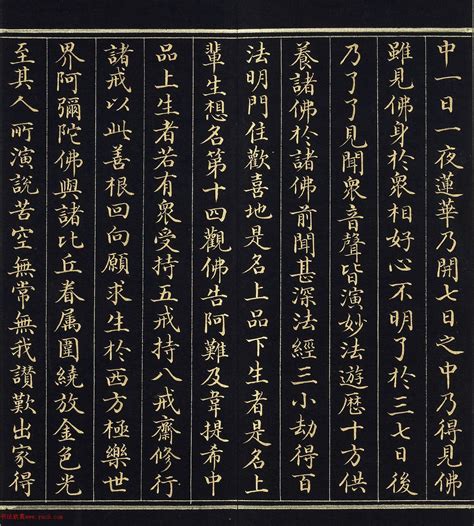 中一日一夜蓮華乃開七日之中乃得見佛
雖見佛身於衆相好心不明了於三七日後
乃了了見聞衆音聲皆演妙法遊歷十方供
養諸佛於諸佛前聞甚深法經三小劫得百
法明門住歡喜地是名上品下生者是名上
輩生想名第十四觀佛告阿難及韋提希中
品上生者若有衆受持五戒持八戒齋修行
諸戒以此善根回向願求生於西方極樂世
界阿彌陀佛與諸比丘眷属圍繞放金色光
至其人所演說苦空無常無我讃歎出家得